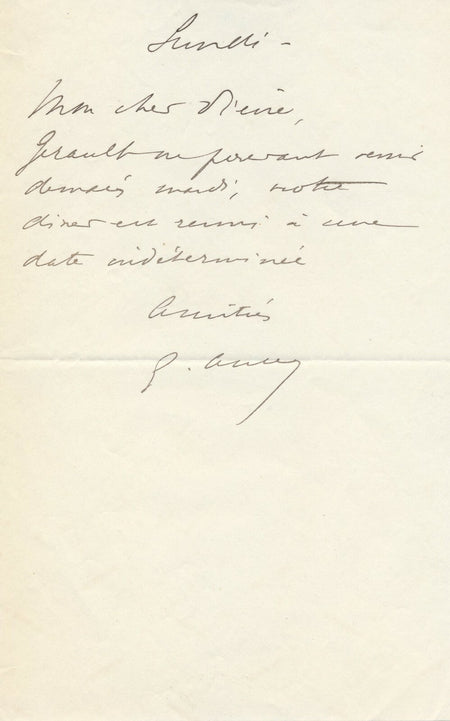 Lundi -
Mon cher Pierre,
Gerault ne pouvant venir
demain mardi, notre
diner est remis à une
date indéterminée
Amitiés
G. Ancey